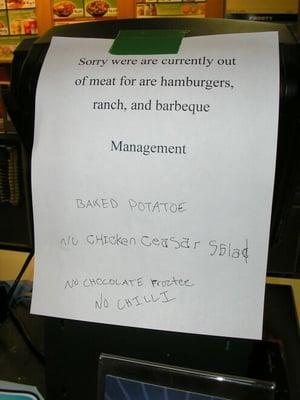 FROSTY
Sorry were are currently out
of meat for are hamburgers,
ranch, and barbeque
Management
BAKED POTATOE
NO CHICKEN CeaSar Salad
NO CHOCOLATE Froztee
NO CHILLI